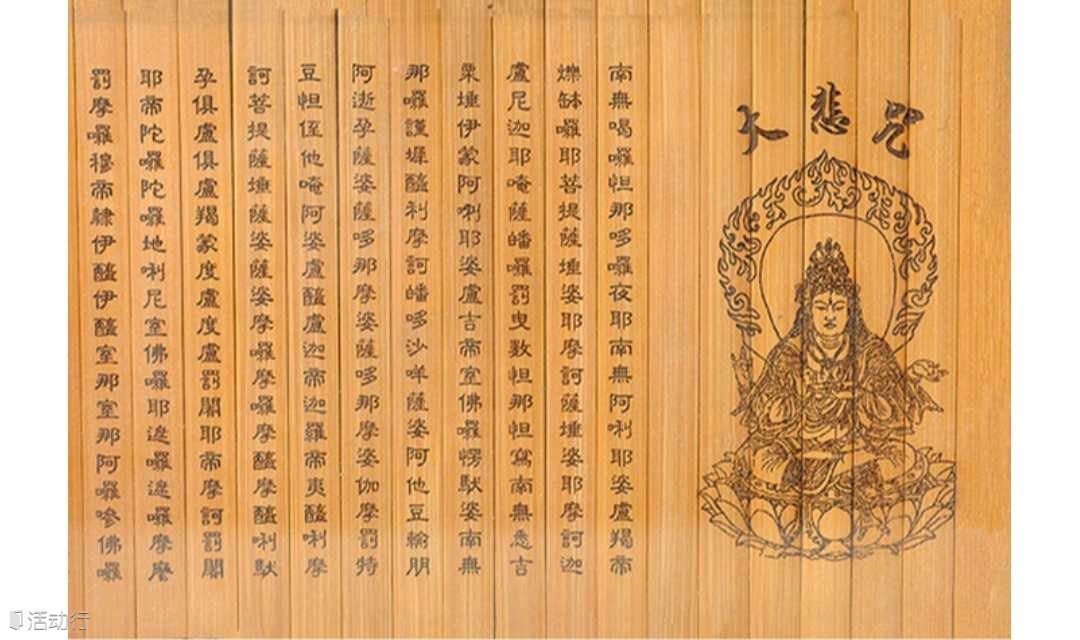 大悲咒
南無喝囉怛那哆囉夜耶南無阿唎耶婆盧羯帝
爍缽囉耶菩提薩埵婆耶摩訶薩埵婆耶摩訶迦
盧尼迦耶唵薩皤囉罰曳數怛那怛寫南無悉吉
栗埵伊蒙阿唎耶婆盧吉帝室佛囉愣馱婆南無
那囉謹墀醯利摩訶皤哆沙咩薩婆阿他豆輸朋
阿逝孕薩婆薩哆那摩婆薩哆那摩婆伽摩罰特
豆怛侄他唵阿婆盧醯盧迦帝迦羅帝夷醯唎摩
訶菩提薩埵薩婆薩婆摩囉摩囉摩醯摩醯唎馱
孕俱盧俱盧羯蒙度盧度盧罰闍耶帝摩訶罰闍
耶帝陀囉陀囉地唎尼室佛囉耶遮囉遮囉摩麼
罰摩囉穆帝隸伊醯伊醯室那室那阿囉嘇佛囉
活动行